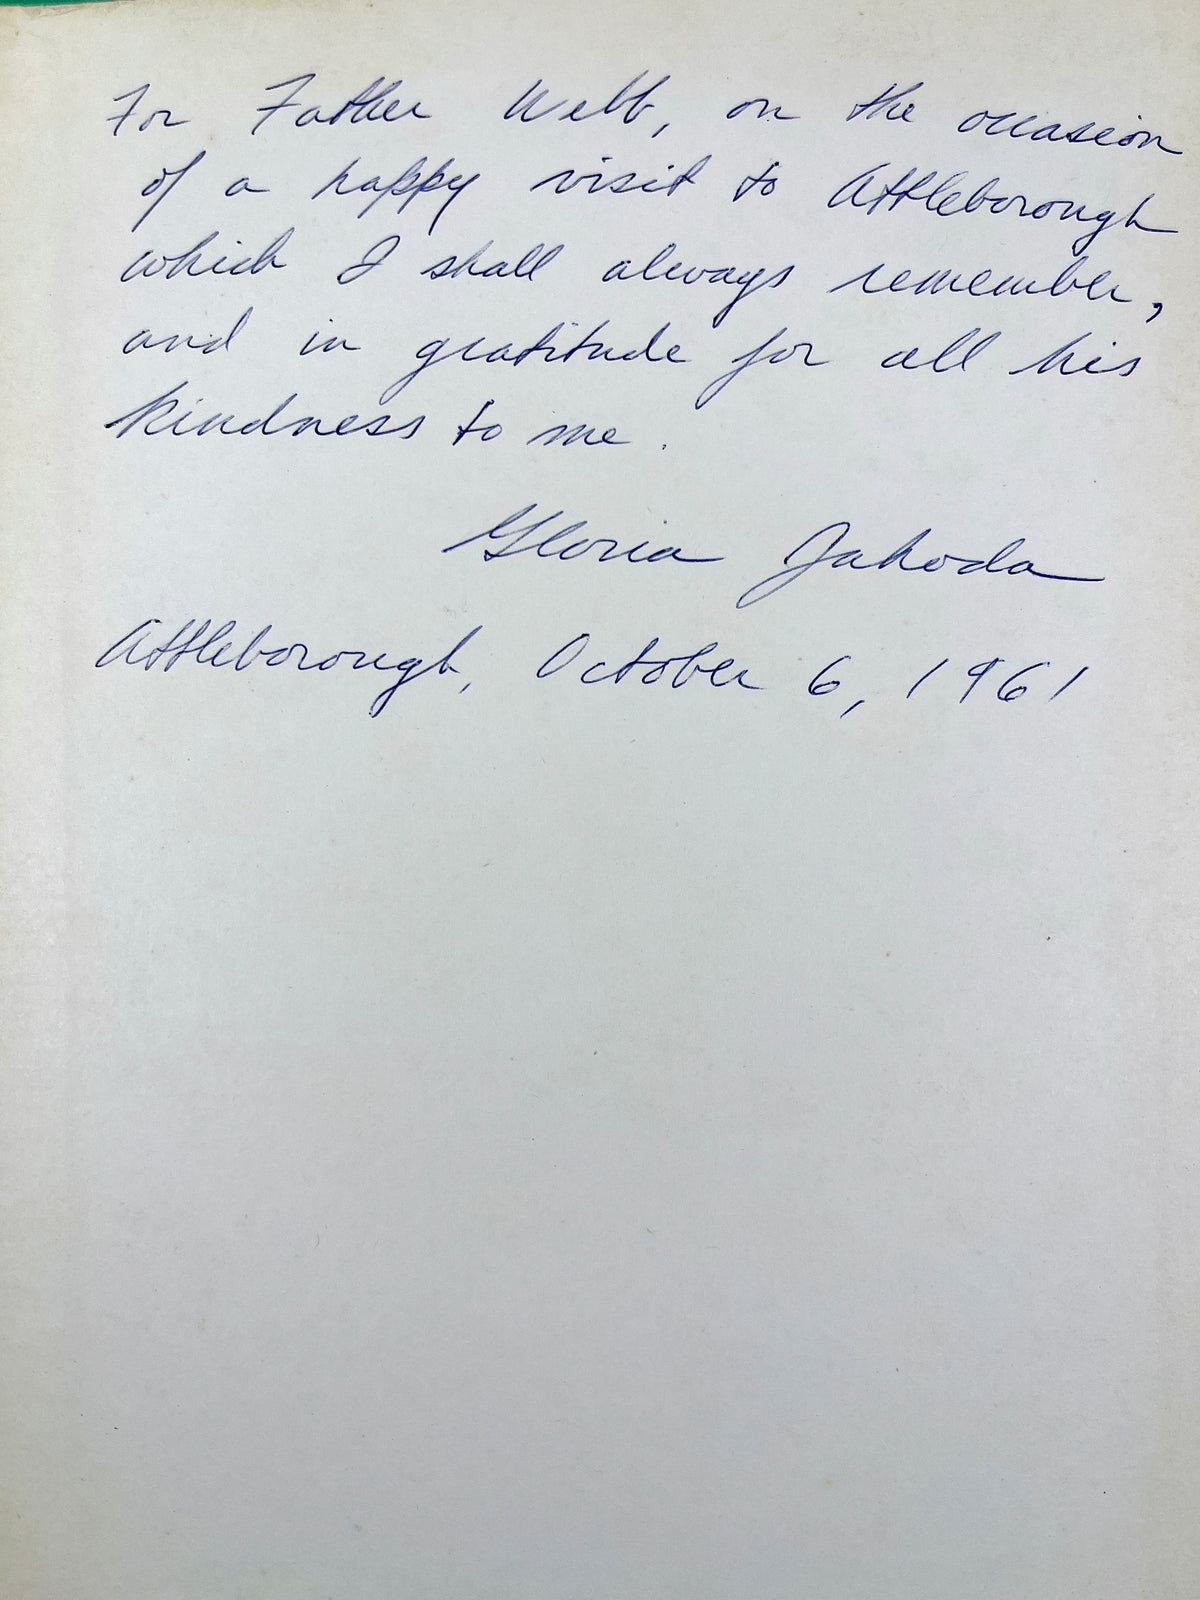 For Father Webb, on the occasion
of a happy visit to Attleborough
which I shall always remember,
and in gratitude for all his
kindness to me.
Gloria Jahoda
Attleborough, October 6, 1961